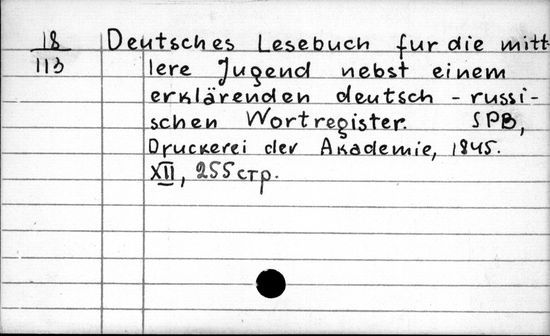 18 Deutsches Lesebuch fur die mitt
113 lere Jugend nebst einem
erklärenden deutsch - russi-
schen Wortregister. SPB,
Druckerei der Akademie, 1845.
XII, 255 стр.